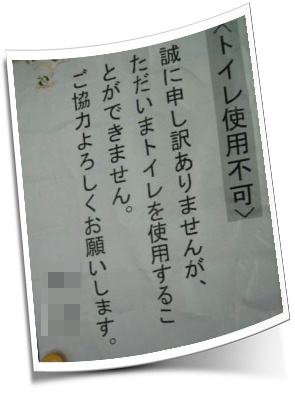 〈トイレ使用不可〉
誠に申し訳ありませんが、
ただいまトイレを使用するこ
とができません。
ご協力よろしくお願いします。